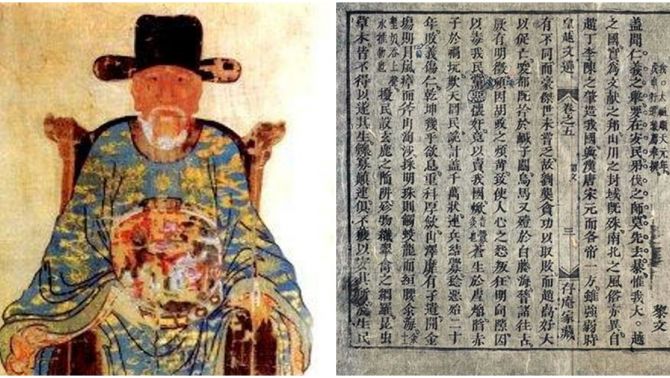 蓋聞仁義之舉要在安民弔伐之師莫先去暴惟我大越
之國實為文獻之邦山川之封域既殊南北之風俗亦異自
趙丁李陳之肇造我國與漢唐宋元而各帝一方雖強弱時
皇越文選 卷之五 黎文 三 存庵家藏
有不同而豪傑世未嘗乏故劉龑貪功以取敗而趙禼好大
以促亡唆都既擒於鹹子關烏馬又殪於白藤海嵇諸往古
厥有明徵頃因胡政之煩苛致使人心之怨叛狂明伺隙因
以毒我民偽黨懷奸竟以賣我國焮蒼生於虐焰陷赤
子於禍坑欺天罔民詭計蓋千萬狀連兵結釁稔惡殆二十
年敗義傷仁乾坤幾乎欲息重科厚歛山澤靡有孑遺開金
場則冒嵐瘴而斧山淘沙採明珠則觸蛟龍而緪腰汆海
擾民設玄鹿之陷阱殄物織翠禽之網羅昆虫
草木皆不得以遂其生鰥寡顛連俱不獲以安其所生民
黎文